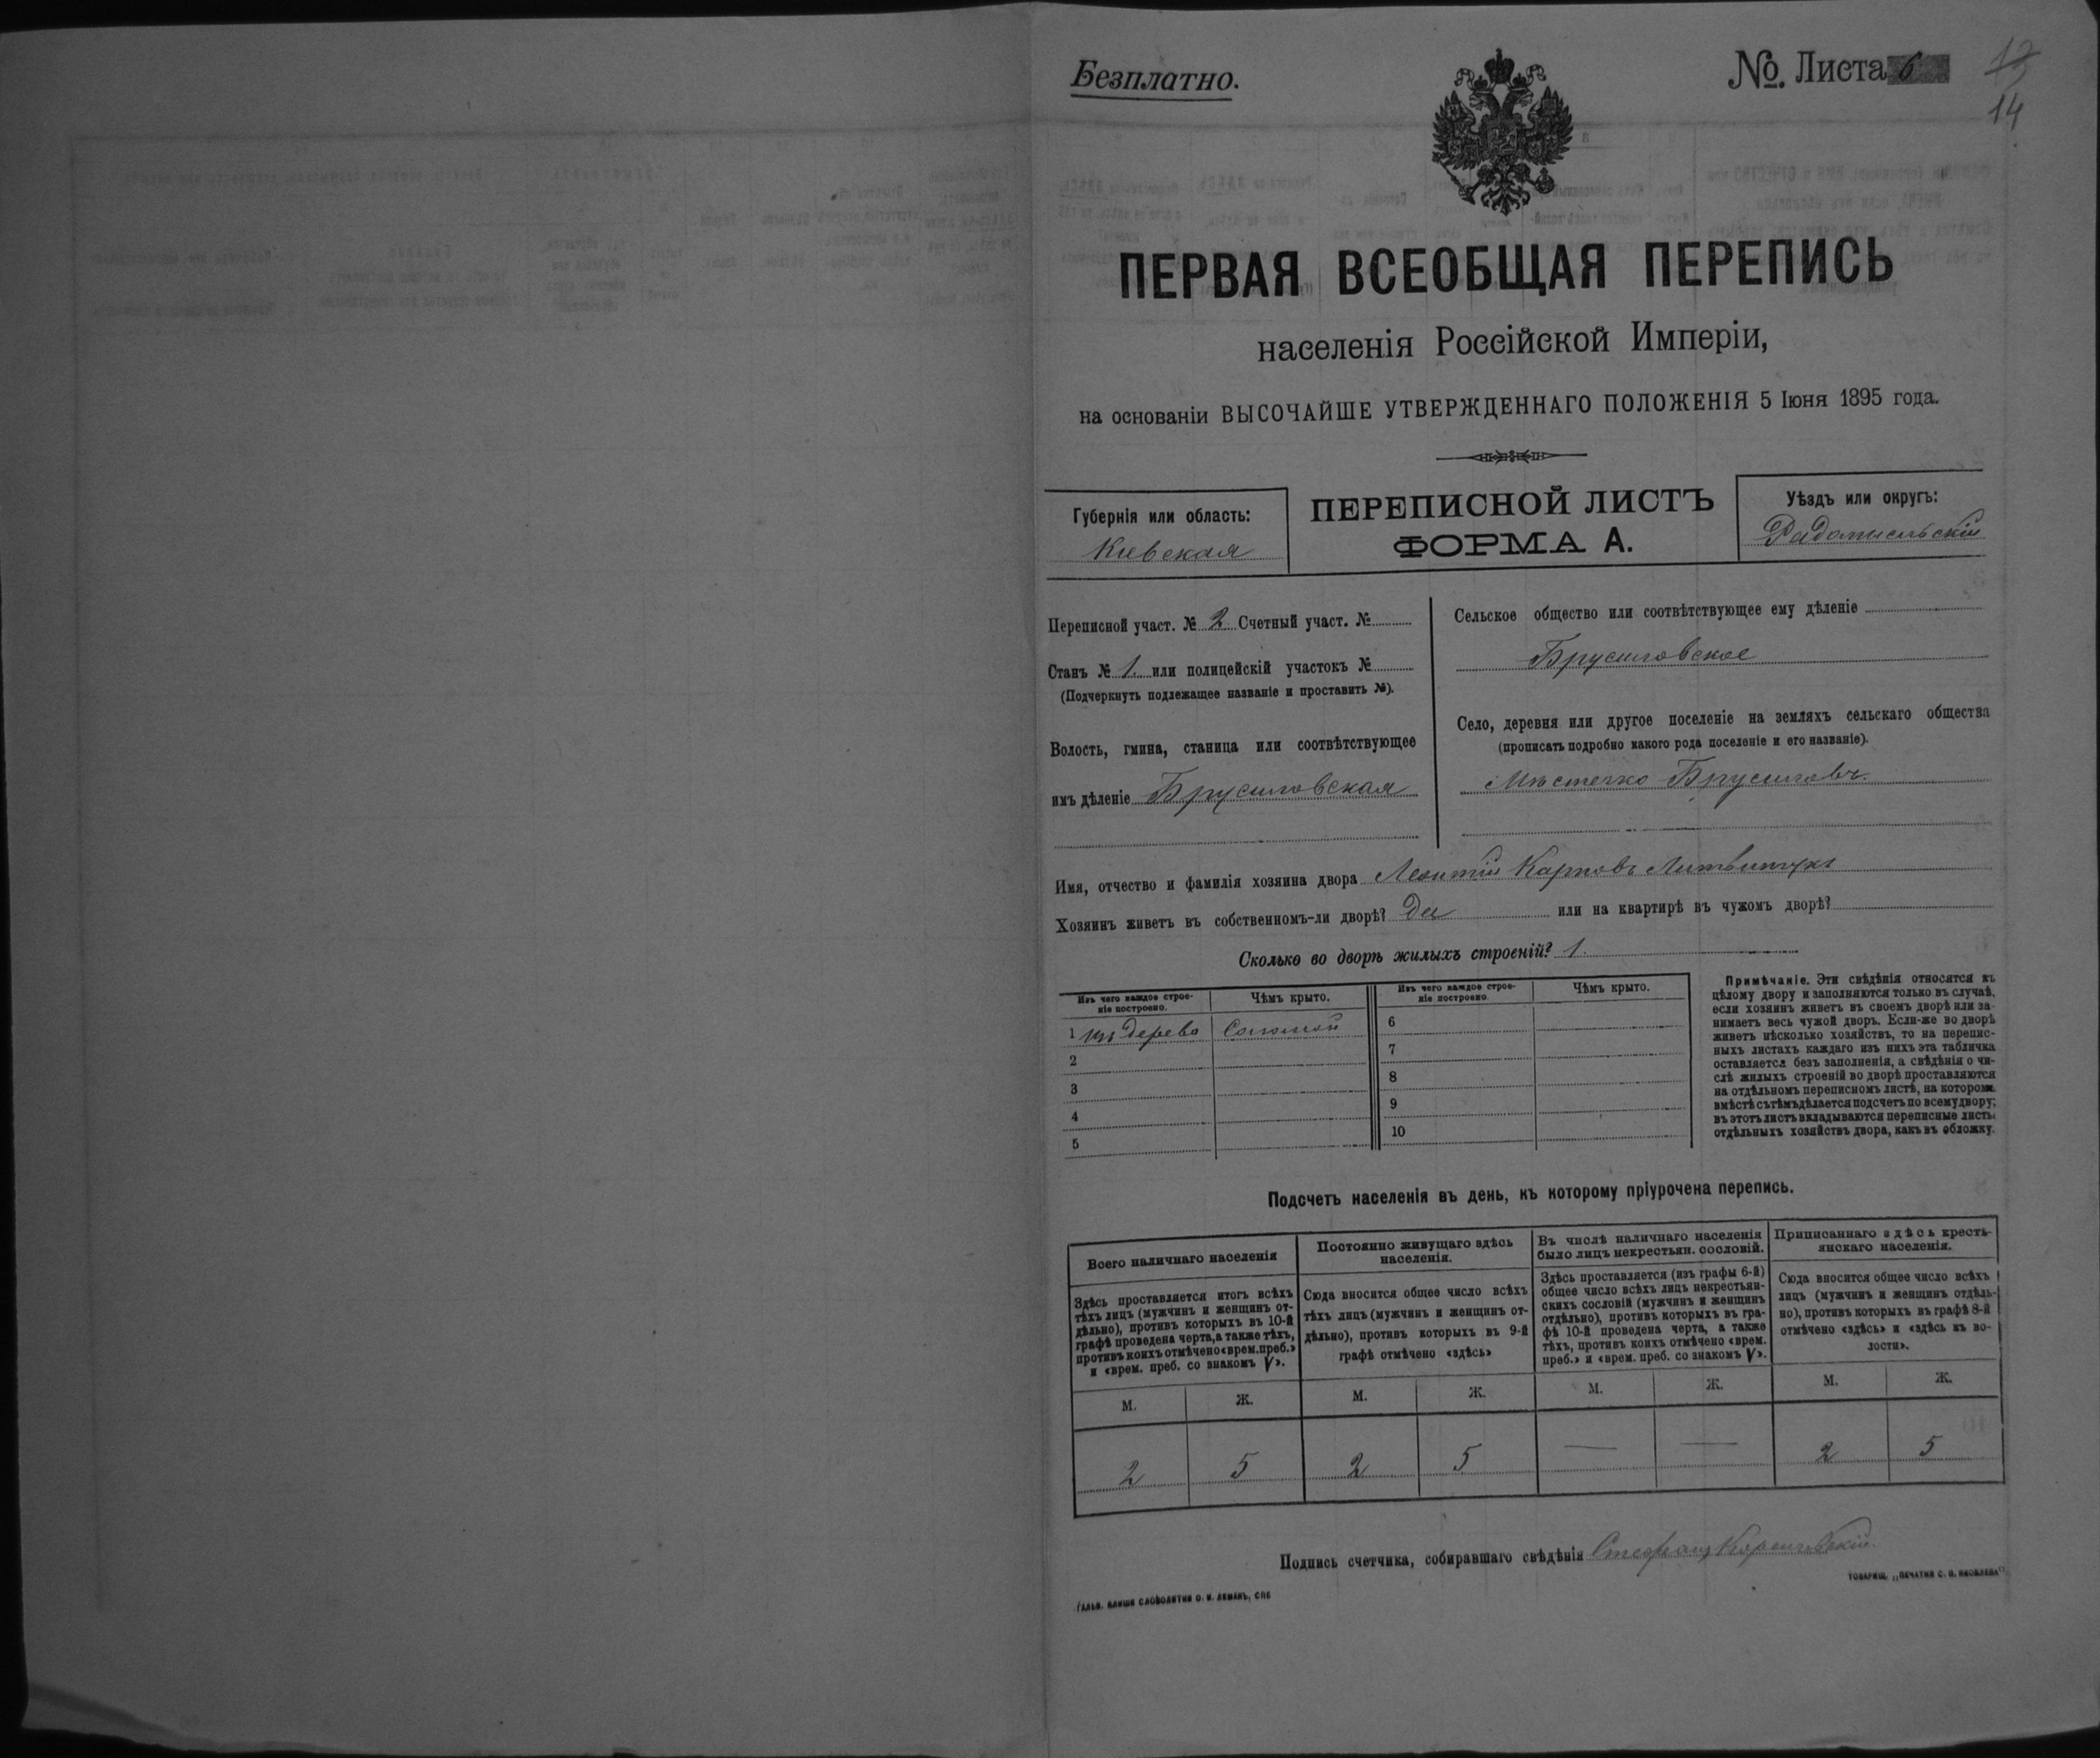 Безплатно.
№ Листа 6
13
14
ПЕРВАЯ ВСЕОБЩАЯ ПЕРЕПИСЬ
населенія Россійской Имперіи,
на основаніи ВЫСОЧАЙШЕ УТВЕРЖДЕННАГО ПОЛОЖЕНІЯ 5 Іюня 1895 года.
Губернія или область:
Кіевская
ПЕРЕПИСНОЙ ЛИСТЪ
ФОРМА А.
Уѣздъ или округъ:
Радомысльскій
Переписной участ. № 2 Счетный участ. №
Станъ № 1. или полицейскій участокъ №
(Подчеркнуть подлежащее названіе и проставить №).
Волость, гмина, станица или соотвѣтствующее
имъ дѣленіе Брусиловская
Сельское общество или соотвѣтствующее ему дѣленіе
Брусиловское
Село, деревня или другое поселеніе на земляхъ сельскаго общества
(прописать подробно какого рода поселеніе и его названіе).
Мѣстечко Брусиловъ.
Имя, отчество и фамилія хозяина двора Леонтій Карповъ Литвинчукъ
Хозяинъ живетъ въ собственномъ-ли дворѣ? Да или на квартирѣ въ чужомъ дворѣ?
Сколько во дворѣ жилыхъ строеній? 1.
Изъ чего каждое строе-
ніе построено.
Чѣмъ крыто.
Изъ чего каждое строе-
ніе построено.
Чѣмъ крыто.
1 изъ дерева Соломой
2
3
4
5
6
7
8
9
10
Примѣчаніе. Эти свѣдѣнія относятся къ
цѣлому двору и заполняются только въ случаѣ,
если хозяинъ живетъ въ своемъ дворѣ или за-
нимаетъ весь чужой дворъ. Если-же во дворѣ
живетъ нѣсколько хозяйствъ, то на перепис-
ныхъ листахъ каждаго изъ нихъ эта табличка
оставляется безъ заполненія, а свѣдѣнія о чи-
слѣ жилыхъ строеній во дворѣ проставляются
на отдѣльномъ переписномъ листѣ, на которомъ
вмѣстѣ съ тѣмъ дѣлается подсчетъ по всему двору;
въ этотъ листъ вкладываются переписные листы
отдѣльныхъ хозяйствъ двора, какъ въ обложку.
Подсчетъ населенія въ день, къ которому пріурочена перепись.
Всего наличнаго населенія
Постоянно живущаго здѣсь
населенія.
Въ числѣ наличнаго населенія
было лицъ некрестьян. сословій.
Приписаннаго здѣсь кресть-
янскаго населенія.
Здѣсь проставляется итогъ всѣхъ
тѣхъ лицъ (мужчинъ и женщинъ от-
дѣльно), противъ которыхъ въ 10-й
графѣ проведена черта, а также тѣхъ,
противъ коихъ отмѣчено «врем. преб.»
и «врем. преб. со знакомъ V».
Сюда вносится общее число всѣхъ
тѣхъ лицъ (мужчинъ и женщинъ от-
дѣльно), противъ которыхъ въ 9-й
графѣ отмѣчено «здѣсь»
Здѣсь проставляется (изъ графы 6-й)
общее число всѣхъ лицъ некрестьян-
скихъ сословій (мужчинъ и женщинъ
отдѣльно), противъ которыхъ въ гра-
фѣ 10-й проведена черта, а также
тѣхъ, противъ коихъ отмѣчено «врем.
преб.» и «врем. преб. со знакомъ V».
Сюда вносится общее число всѣхъ
лицъ (мужчинъ и женщинъ отдѣль-
но), противъ которыхъ въ графѣ 8-й
отмѣчено «здѣсь» и «здѣсь къ во-
лости».
М. Ж. М. Ж. М. Ж. М. Ж.
2 5 2 5 — — 2 5
Подпись счетчика, собиравшаго свѣдѣнія Стефанъ
ГАЛЬВ. КЛИШЕ СЛОВОЛИТНИ О. И. ЛЕМАНЪ, СПБ
ТОВАРИЩ. „ПЕЧАТНЯ С. П. ЯКОВЛЕВА"